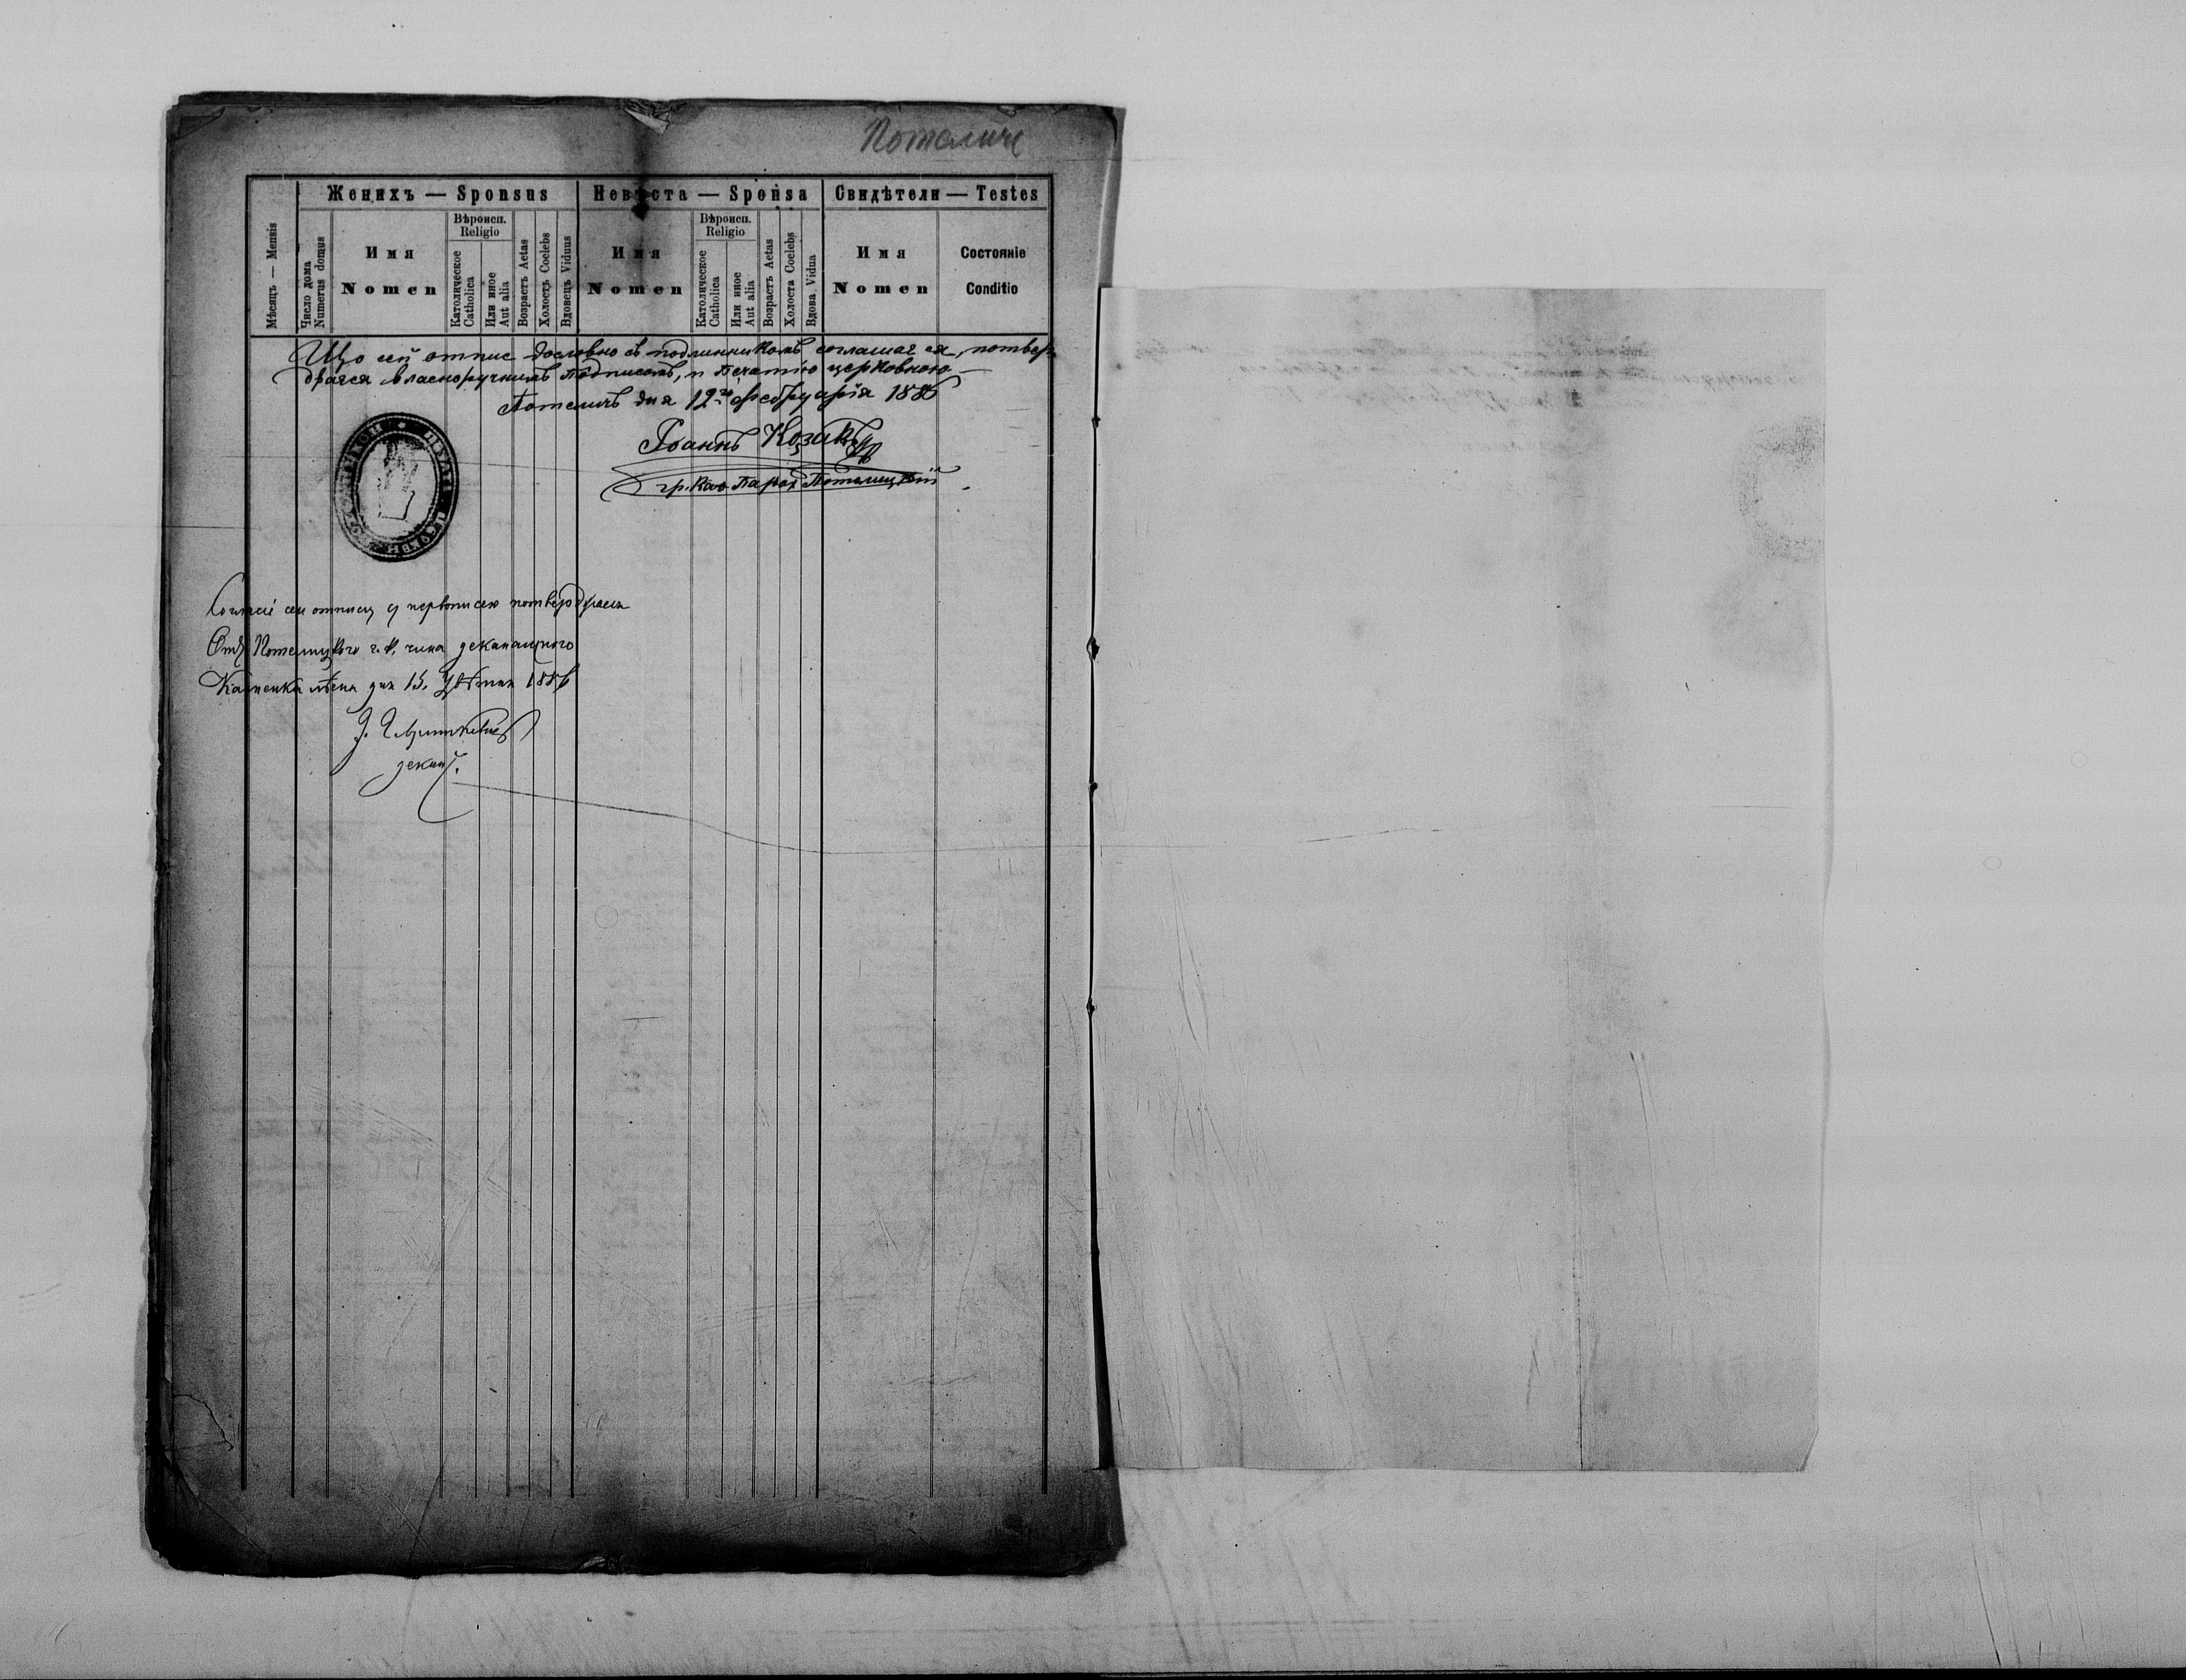 Потеличе
Женихъ — Sponsus
Невѣста — Sponsa
Свидѣтели — Testes
Мѣсяцъ — Mensis
Число дома
Numerus domus
Имя
Nomen
Вѣроисп.
Religio
Католическое
Catholica
Или иное
Aut alia
Возрастъ Aetas
Холостъ Coelebs
Вдовецъ Viduus
Имя
Nomen
Вѣроисп.
Religio
Католическое
Catholica
Или иное
Aut alia
Возрастъ Aetas
Холоста Coelebs
Вдова Vidua
Имя
Nomen
Состояніе
Conditio
Що сей отпис дословно съ подлинникомъ соглашае ся, потвер
джаеся власноручнимъ подписомъ, и печатію церковною —
Потеличъ дня 12го фебруарія 1886
Іоаннъ Козакъ
гр. као парох Потелицкій
сей отпису з первописею потверджаеся
Отъ Потелицкого г. к. чина деканального
Каменка дня 15. Цвѣтня 1886
декан.